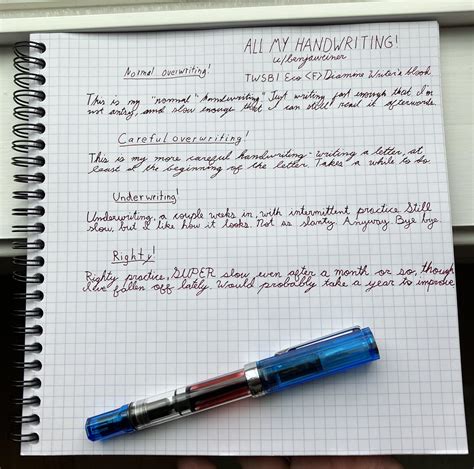 ALL MY HANDWRITING!
u/benjawiener
Normal overwriting!
TWSBI Eco <F> Diamine Writer's Blood
This is my "normal" handwriting. Just writing fast enough that I'm
not antsy, and slow enough that I can still read it afterwards.
Careful overwriting!
This is my more careful handwriting - writing a letter, at
least at the beginning of the letter. Takes a while to do.
Underwriting!
Underwriting, a couple weeks in, with intermittent practice. Still
slow, but I like how it looks. Not as slanty. Anyway. Bye bye.
Righty!
Righty practice, SUPER slow even after a month or so, though
I've fallen off lately. Would probably take a year to improve